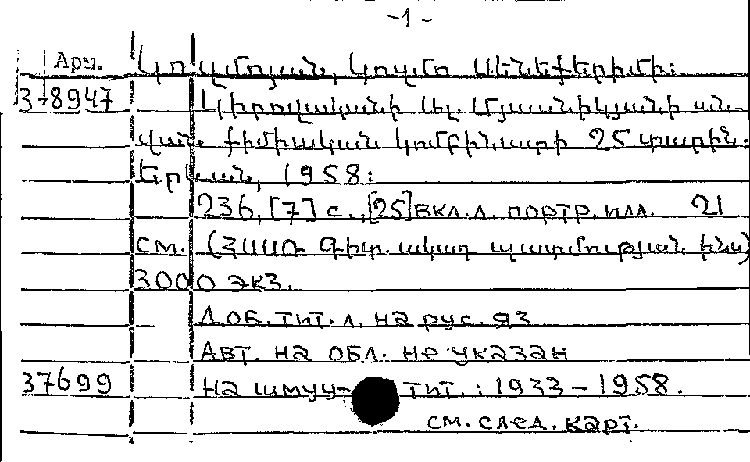 -1-
Арм. Կոզմոյան, Կոզմո Ասենեքերիմի:
3-8947 Կիրովականի Ալ. Մյասնիկյանի ան-
վան. քիմիական կոմբինատի 25 տարին.
Երևան, 1958:
236, [7] с., [25] вкл.л. портр. илл. 21
см. (ՀՍՍՌ Գիտ. ակադ պատմության ինս)
3000 экз.
Доб. тит. л. на рус. яз
Авт. на обл. не указан
37699 На тит.: 1933-1958.
см. след. карт.